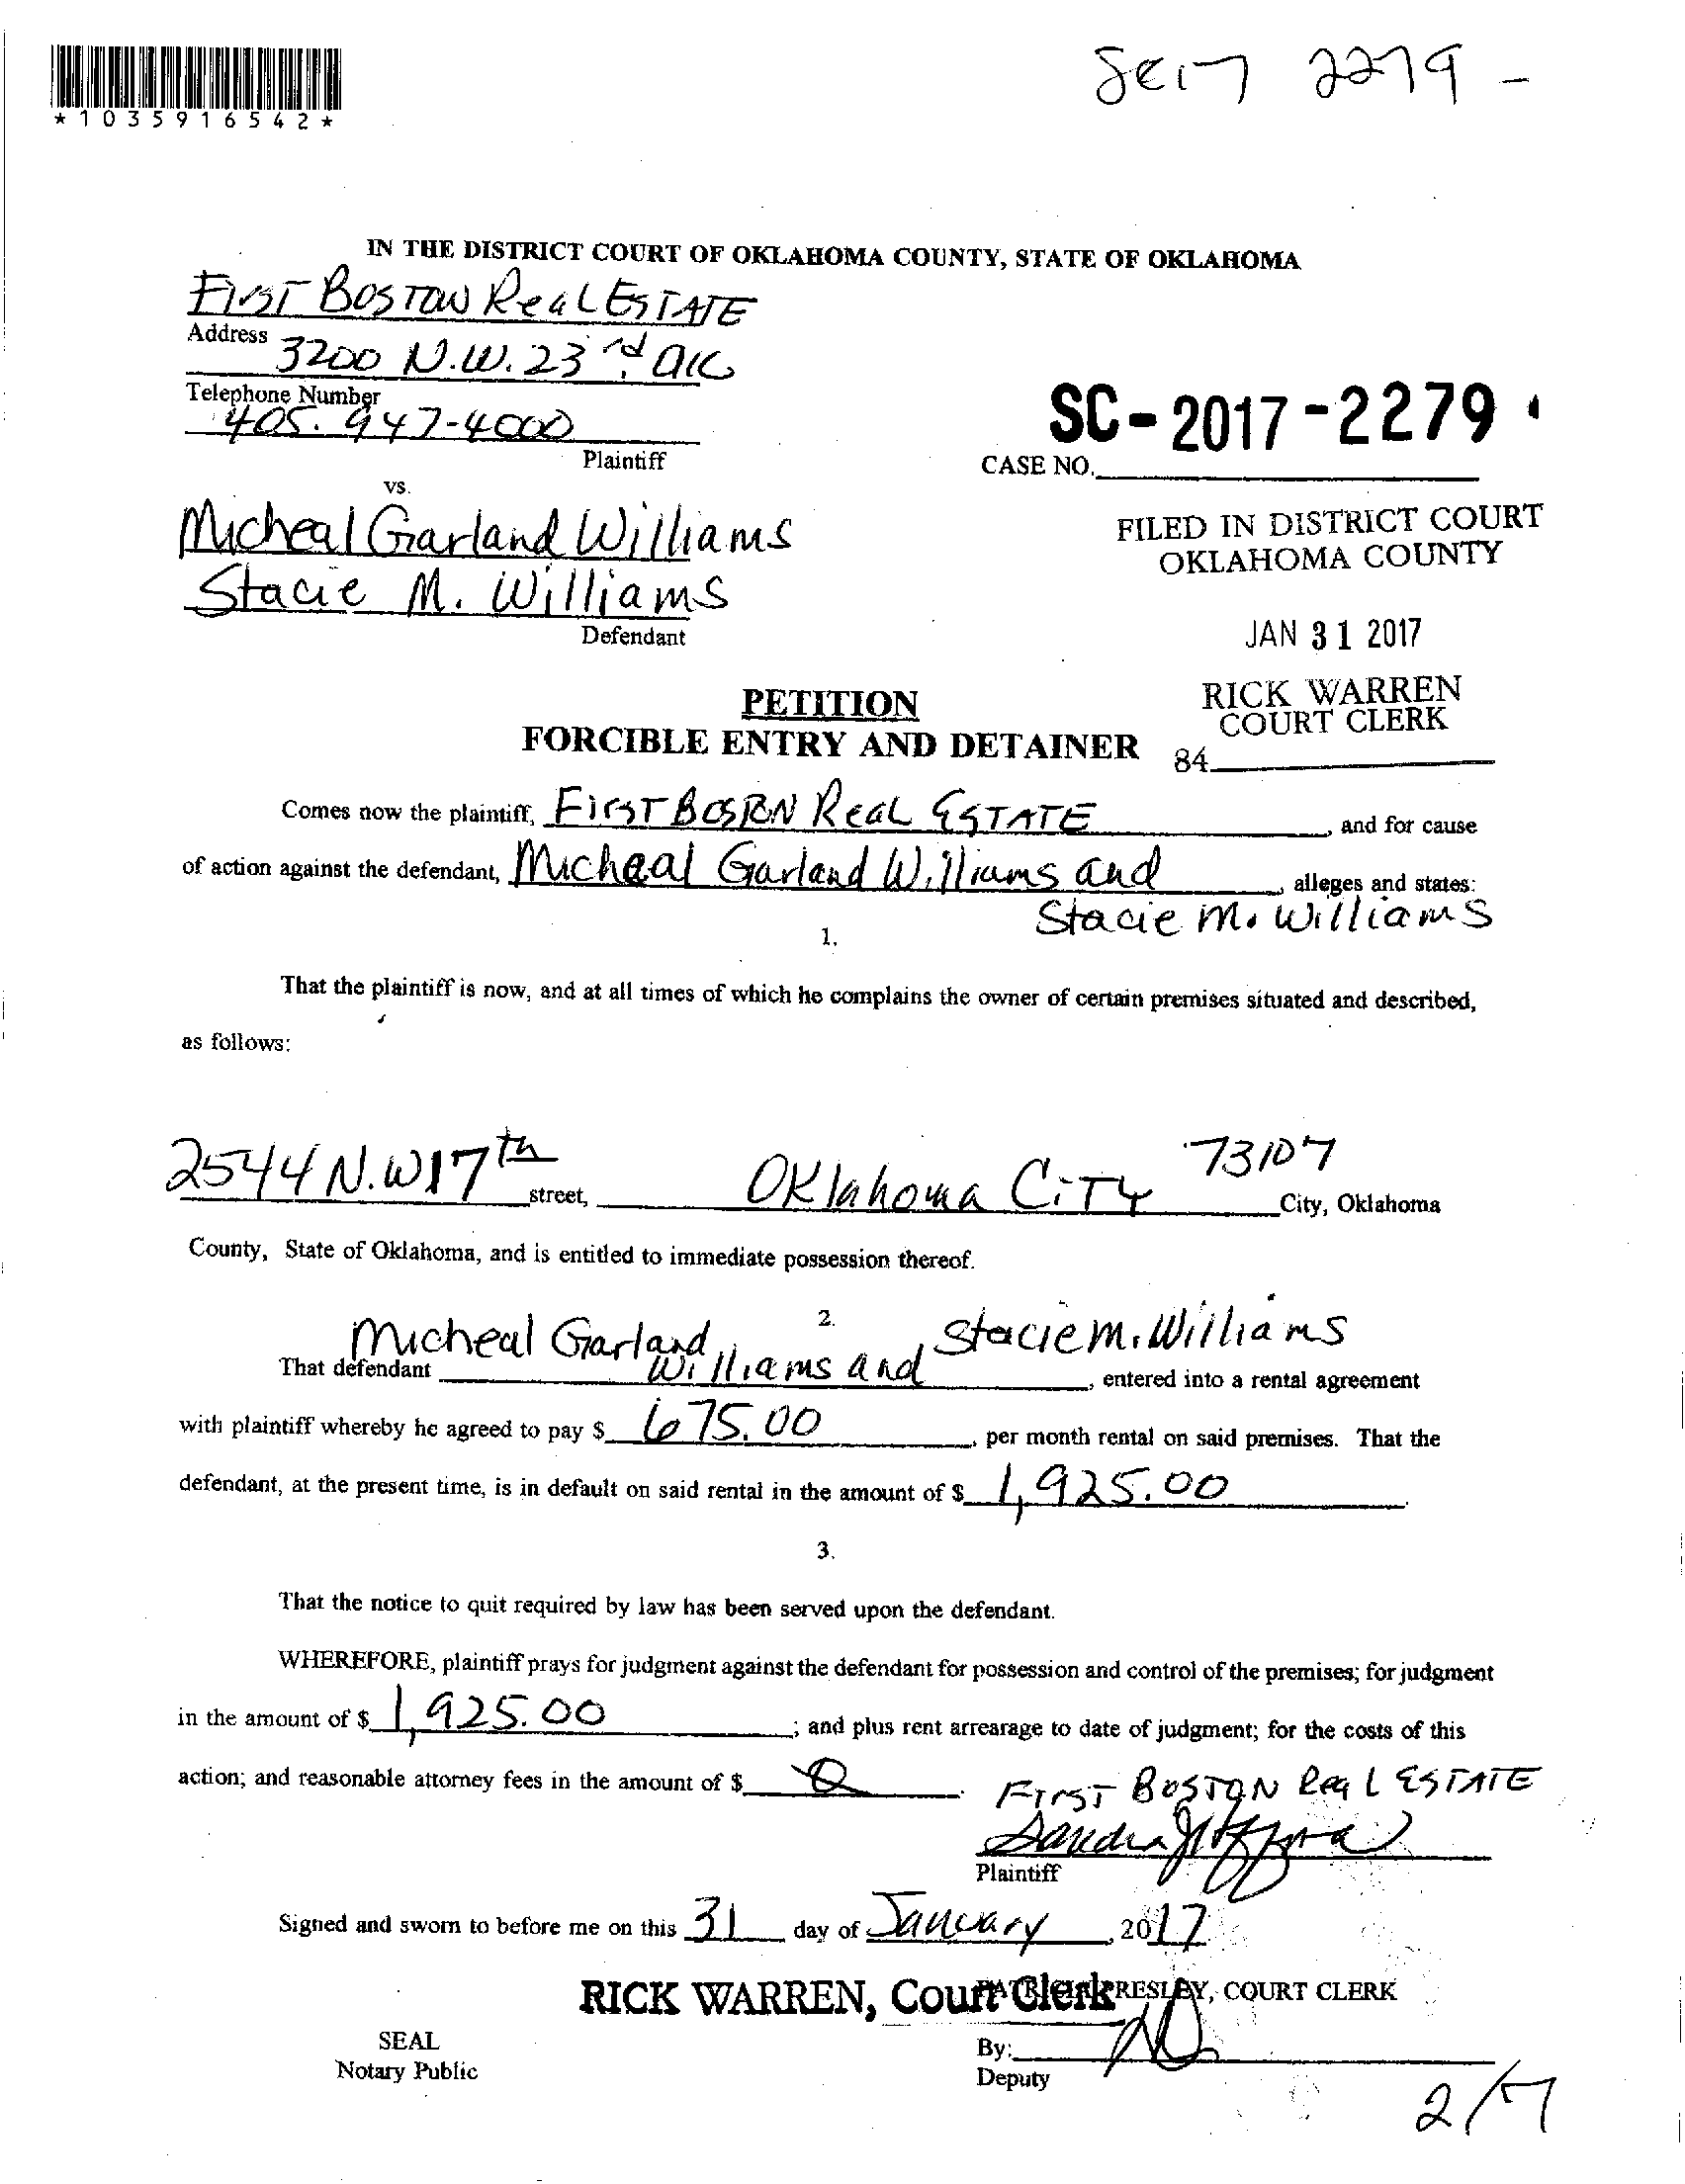 *1035916542*
SC17 2279 -
IN THE DISTRICT COURT OF OKLAHOMA COUNTY, STATE OF OKLAHOMA
FirST BOSTON ReaL ESTATE
Address 3200 N.W. 23rd. OKC
Telephone Number
405. 947-4000
Plaintiff
SC-2017-2279
CASE NO.
vs.
Micheal Garland Williams
Stacie M. Williams
Defendant
FILED IN DISTRICT COURT
OKLAHOMA COUNTY
JAN 31 2017
RICK WARREN
COURT CLERK
84
PETITION
FORCIBLE ENTRY AND DETAINER
Comes now the plaintiff, FirST BOSTON ReaL ESTATE, and for cause
of action against the defendant, Micheal Garland Williams and, alleges and states:
Stacie M. Williams
1.
That the plaintiff is now, and at all times of which he complains the owner of certain premises situated and described,
as follows:
2544 N.W 17th street, Oklahoma CiTy 73107 City, Oklahoma
County, State of Oklahoma, and is entitled to immediate possession thereof.
2.
That defendant Micheal Garland Williams and Stacie M. Williams, entered into a rental agreement
with plaintiff whereby he agreed to pay $ 675.00, per month rental on said premises. That the
defendant, at the present time, is in default on said rental in the amount of $ 1,925.00.
3.
That the notice to quit required by law has been served upon the defendant.
WHEREFORE, plaintiff prays for judgment against the defendant for possession and control of the premises; for judgment
in the amount of $ 1,925.00; and plus rent arrearage to date of judgment; for the costs of this
action; and reasonable attorney fees in the amount of $ 0.
FirST BOSTON Real ESTATE
Sandra
Plaintiff
Signed and sworn to before me on this 31 day of January, 2017
RICK WARREN, Court Clerk PRESLEY, COURT CLERK
SEAL
Notary Public
By:
Deputy
2/7